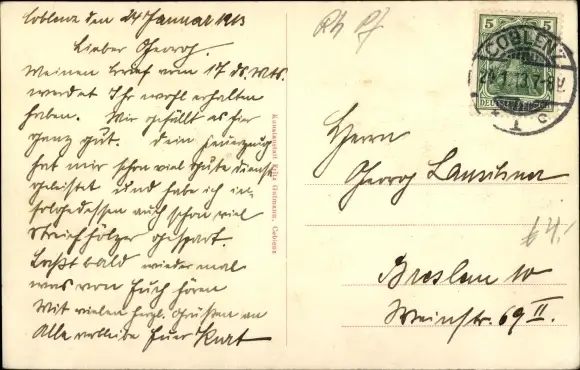 Coblenz den 24 Januar 1913
Lieber Georg.
Meinen Brief vom 17 ds. Mts.
werdet Ihr wohl erhalten
haben. Mir gefällt es hier
ganz gut. Dein Feuerzeug
hat mir schon viel gute Dienste
geleistet und habe ich in-
folgedessen auch schon viel
Streichhölzer gespart.
Laßt bald wieder mal
was von Euch hören
Mit vielen herzl. Grüßen an
Alle verbleibe Euer Kurt
Kunstanstalt Felix Gutmann, Coblenz
Rh Pf
5 5
COBLENZ
24.1.13.7-8V
Herrn
Georg
Breslau 10
Weinstr. 69 II.